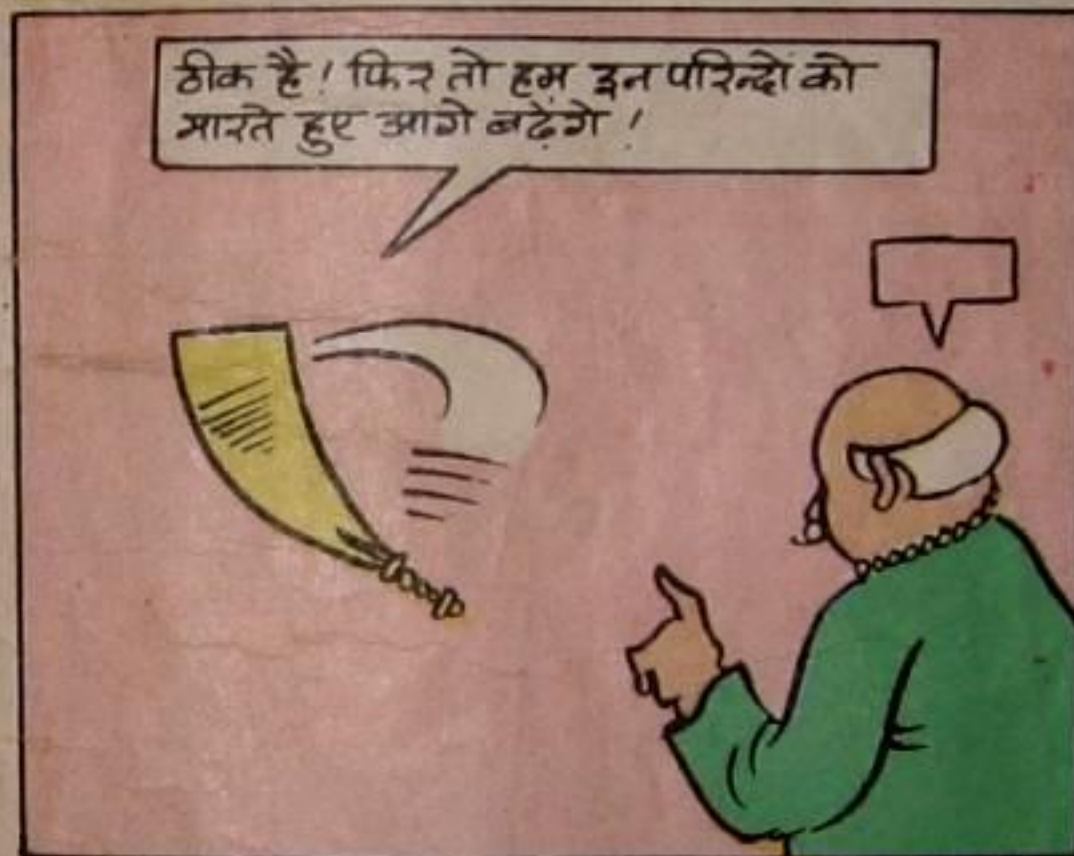 ठीक है! फिर तो हम इन परिन्दों को
मारते हुए आगे बढ़ेंगे!